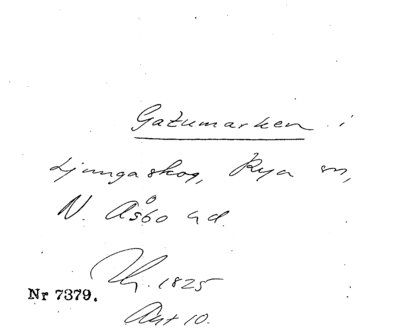 Gatumarken i
Ljungaskog, Rya sn,
N. Åsbo hd.
1825
Nr 7379.
Akt 10.